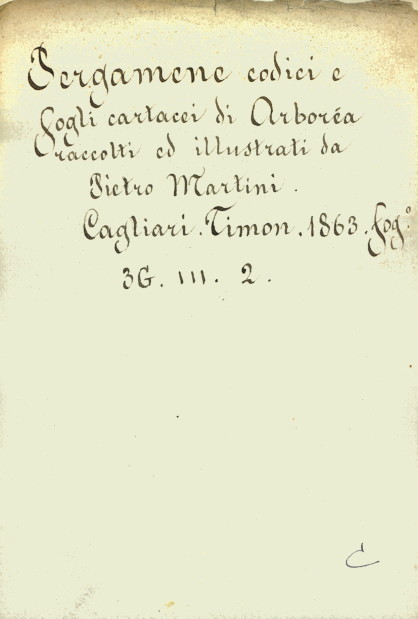 Pergamene codici e
fogli cartacei di Arboréa
raccolti ed illustrati da
Pietro Martini.
Cagliari. Timon. 1863. fog.º
3G. III. 2.
C